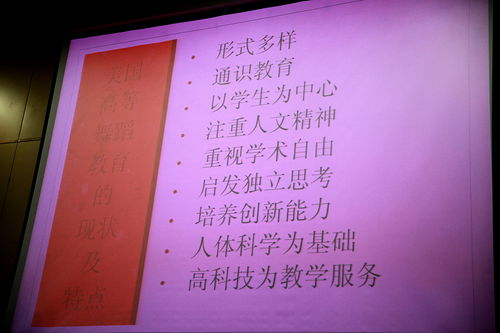 美国
高等
舞蹈
教育
的
现状
及
特点
• 形式多样
• 通识教育
• 以学生为中心
• 注重人文精神
• 重视学术自由
• 启发独立思考
• 培养创新能力
• 人体科学为基础
• 高科技为教学服务